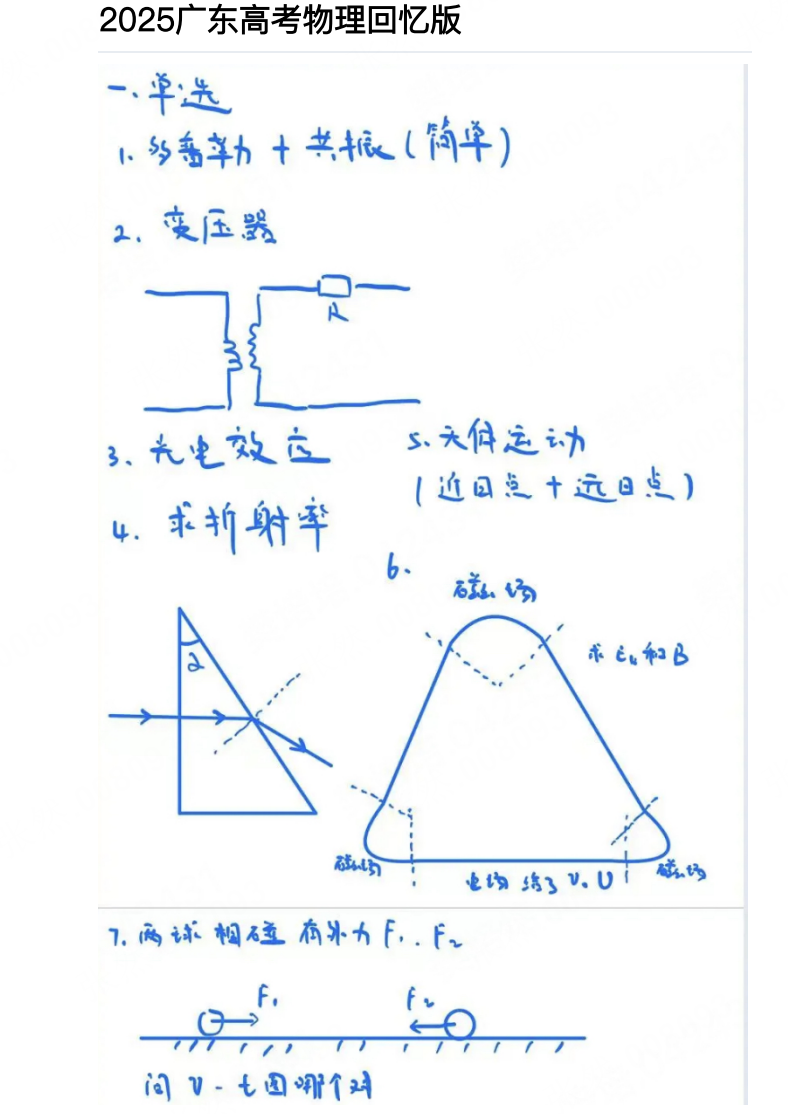 2025广东高考物理回忆版
一、单选
1. 多普勒力 + 共振(简单)
2. 变压器
R
3. 光电效应
4. 求折射率
α
5. 天体运动
(近日点 + 远日点)
6.
磁场
求 Ek 和 B
磁场
电场 给了 v。U
磁场
7. 两球相碰 有外力 F₁. F₂
F₁
F₂
问 v-t图哪个对